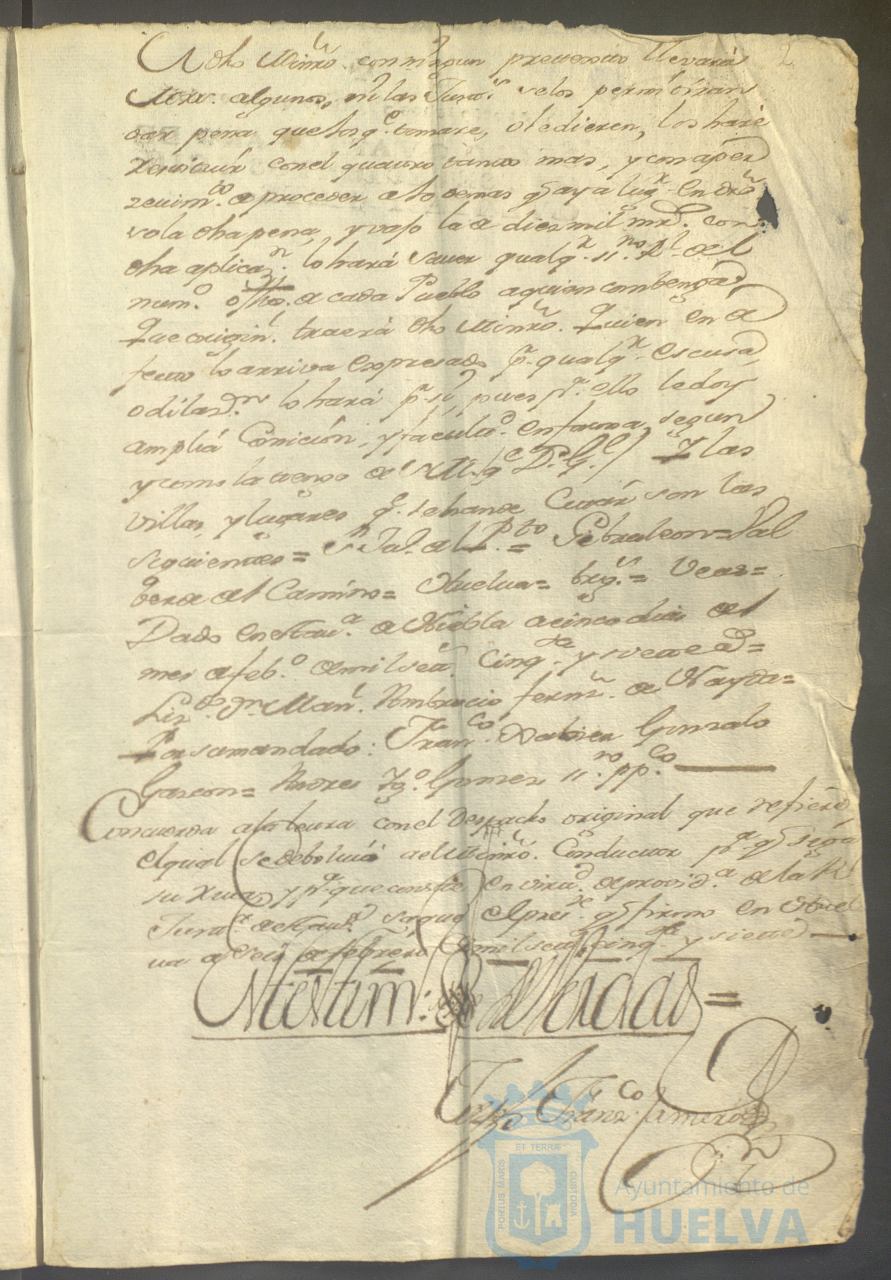 A dho Minrô. con ningun pretexto llevará
dros. algunos, ni las Justª. se los permitirán
con pena que los qᵉ tomare, o le dieren, los haré
restituir con el quatro tanto mas, y con aper
zevimᵗᵒ. de proceder a lo demas q̃ aya lugʳ. en dro
so la dha pena, y vajo la de diez mil mrs̃. con
dha aplicazⁿ. lo hará saver qualqʳ. ssⁿᵒ Rˡ. del
numº. o ffho. de cada Pueblo a quien combenga
que origiⁿ. traerá dho Minrô. Quien en de
fecto lo arriva expresado pʳ. qualqʳ. escusa,
o dilazᵒⁿ lo hará pʳ. si, pues pª. ello le doy
amplia Comición, y facultᵈ. en forma, segun
y como la tengo de S. M. (qᵉ D. Gᵉ) Y las
villas, y lugares qᵉ. se han de Correr son las
siguientes = Sⁿ Juº. del Pᵗᵒ = Gibraleon = Val
verde del Camino = Huelva = Trigˢ. = Veas =
Dado en esta vª. de Niebla a cinco dias del
mes de febº. de mil setˢ. cinqᵗᵃ. y siete aˢ =
Lizᵈᵒ. Dⁿ Manˡ. Ambrocio fernz̃. de
Por su mandado: Franᶜᵒ. Gonzalo
Garzon = Andres Gomez ssⁿᵒ. ppᶜᵒ.
Concuerda a la letra con el Despacho original que refiere,
el qual se debolvió a el Minrô. Conductor pª. q̃ siga
su Ruta, y pª. que conste en virtᵈ. de providª. de la Rˡ
Justª. de esta vª. saque el presᵗᵉ. q̃ firmo en Huel
va a seis de febrero de mil setˢ. cinqᵗᵃ. y siete
En testim: de Verdad =
Franᶜᵒ. Camero
PORTUS MARIS
ET TERRÆ
CUSTODIA
Ayuntamiento de
HUELVA